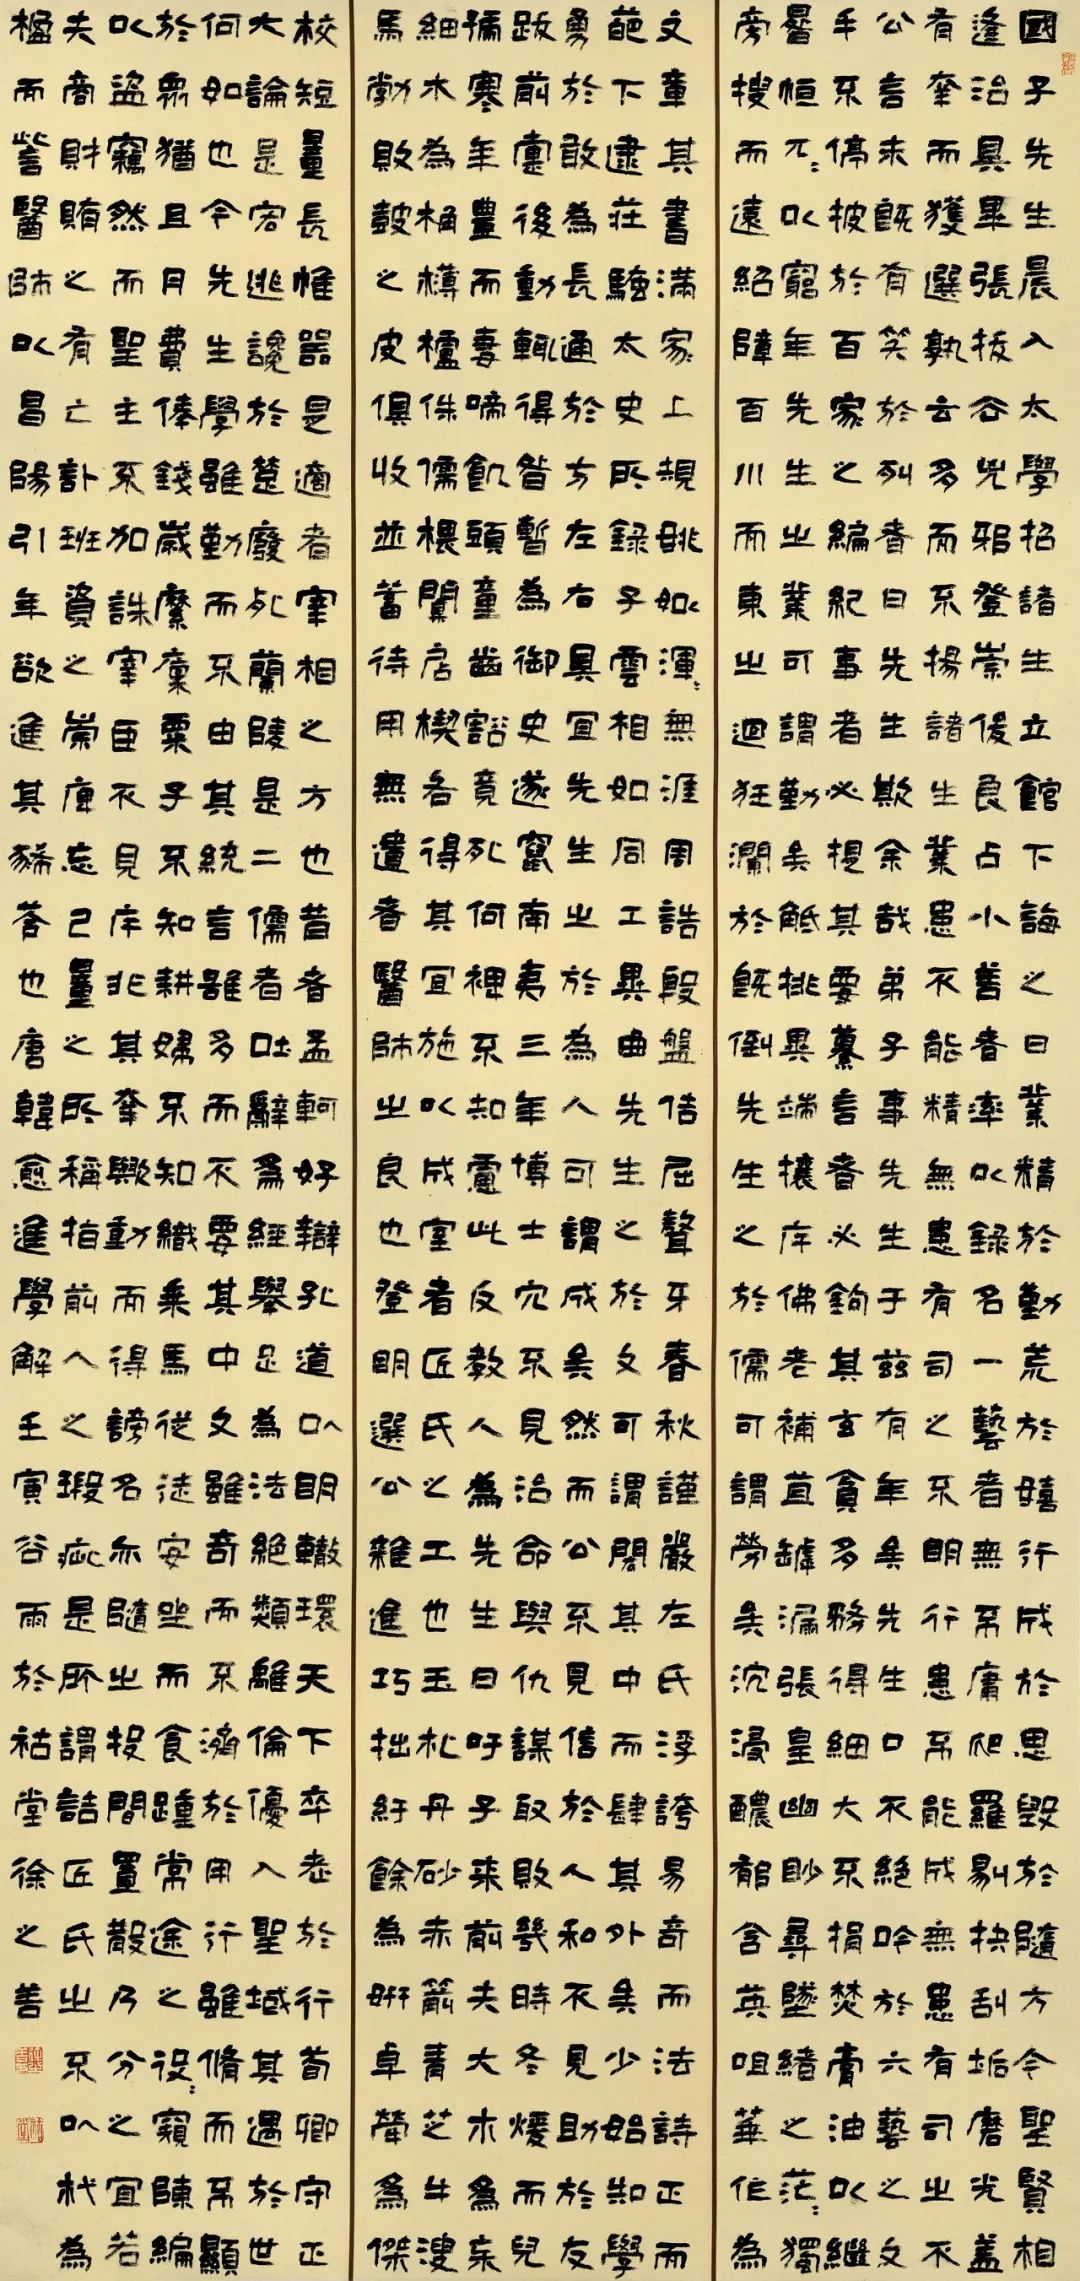 國子先生晨入太學招諸生立館下誨之曰業精於勤荒於嬉行成於思毀於隨方今聖賢相
逢治具畢張拔谷兇邪登崇俊良占小善者率以錄名一藝者無不庸爬羅剔抉刮垢磨光蓋
有幸而獲選孰云多而不揚諸生業患不能精無患有司之不明行患不能成無患有司之不
公言未既有笑於列者曰先生欺余哉弟子事先生于茲有年矣先生口不絕吟於六藝之文
手不停披於百家之編紀事者必提其要纂言者必鉤其玄貪多務得細大不捐焚膏油以繼
晷恒兀〻以窮年先生之業可謂勤矣觝排異端攘斥佛老補苴罅漏張皇幽眇尋墜緒之茫〻獨
旁搜而遠紹障百川而東之迴狂瀾於既倒先生之於儒可謂勞矣沉浸醲郁含英咀華作為
文章其書滿家上規姚姒渾〻無涯周誥殷盤佶屈聱牙春秋謹嚴左氏浮誇易奇而法詩正而
葩下逮莊騷太史所錄子雲相如同工異曲先生之於文可謂閎其中而肆其外矣少始知學
勇於敢為長通於方左右具宜先生之於為人可謂成矣然而公不見信於人私不見助於友
跋前躓後動輒得咎暫為御史遂竄南夷三年博士冗不見治命與仇謀取敗幾時冬煖而兒
號寒年豐而妻啼飢頭童齒豁竟死何裨不知慮此反教人為先生曰吁子來前夫大木為杗
細木為桷欂櫨侏儒椳闑扂楔各得其宜施以成室者匠氏之工也玉札丹砂赤箭青芝牛溲
馬勃敗鼓之皮俱收並蓄待用無遺者醫師之良也登明選公雜進巧拙紆餘為妍卓犖為傑
校短量長惟器是適者宰相之方也昔者孟軻好辯孔道以明轍環天下卒老於行荀卿守正
大論是宏逃讒於楚廢死蘭陵是二儒者吐辭為經舉足為法絕類離倫優入聖域其遇於世
何如也今先生學雖勤而不由其統言雖多而不要其中文雖奇而不濟於用行雖脩而不顯
於眾猶且月費俸錢歲縻廩粟子不知耕婦不知織乘馬從徒安坐而食踵常途之役〻窺陳編
以盜竊然而聖主不加誅宰臣不見斥非其幸歟動而得謗名亦隨之投閒置散乃分之宜若
夫商財賄之有亡計班資之崇庳忘己量之所稱指前人之瑕疵是所謂詰匠氏之不以杙為
楹而訾醫師以昌陽引年欲進其豨苓也唐韓愈進學解壬寅谷雨於祜堂徐之善